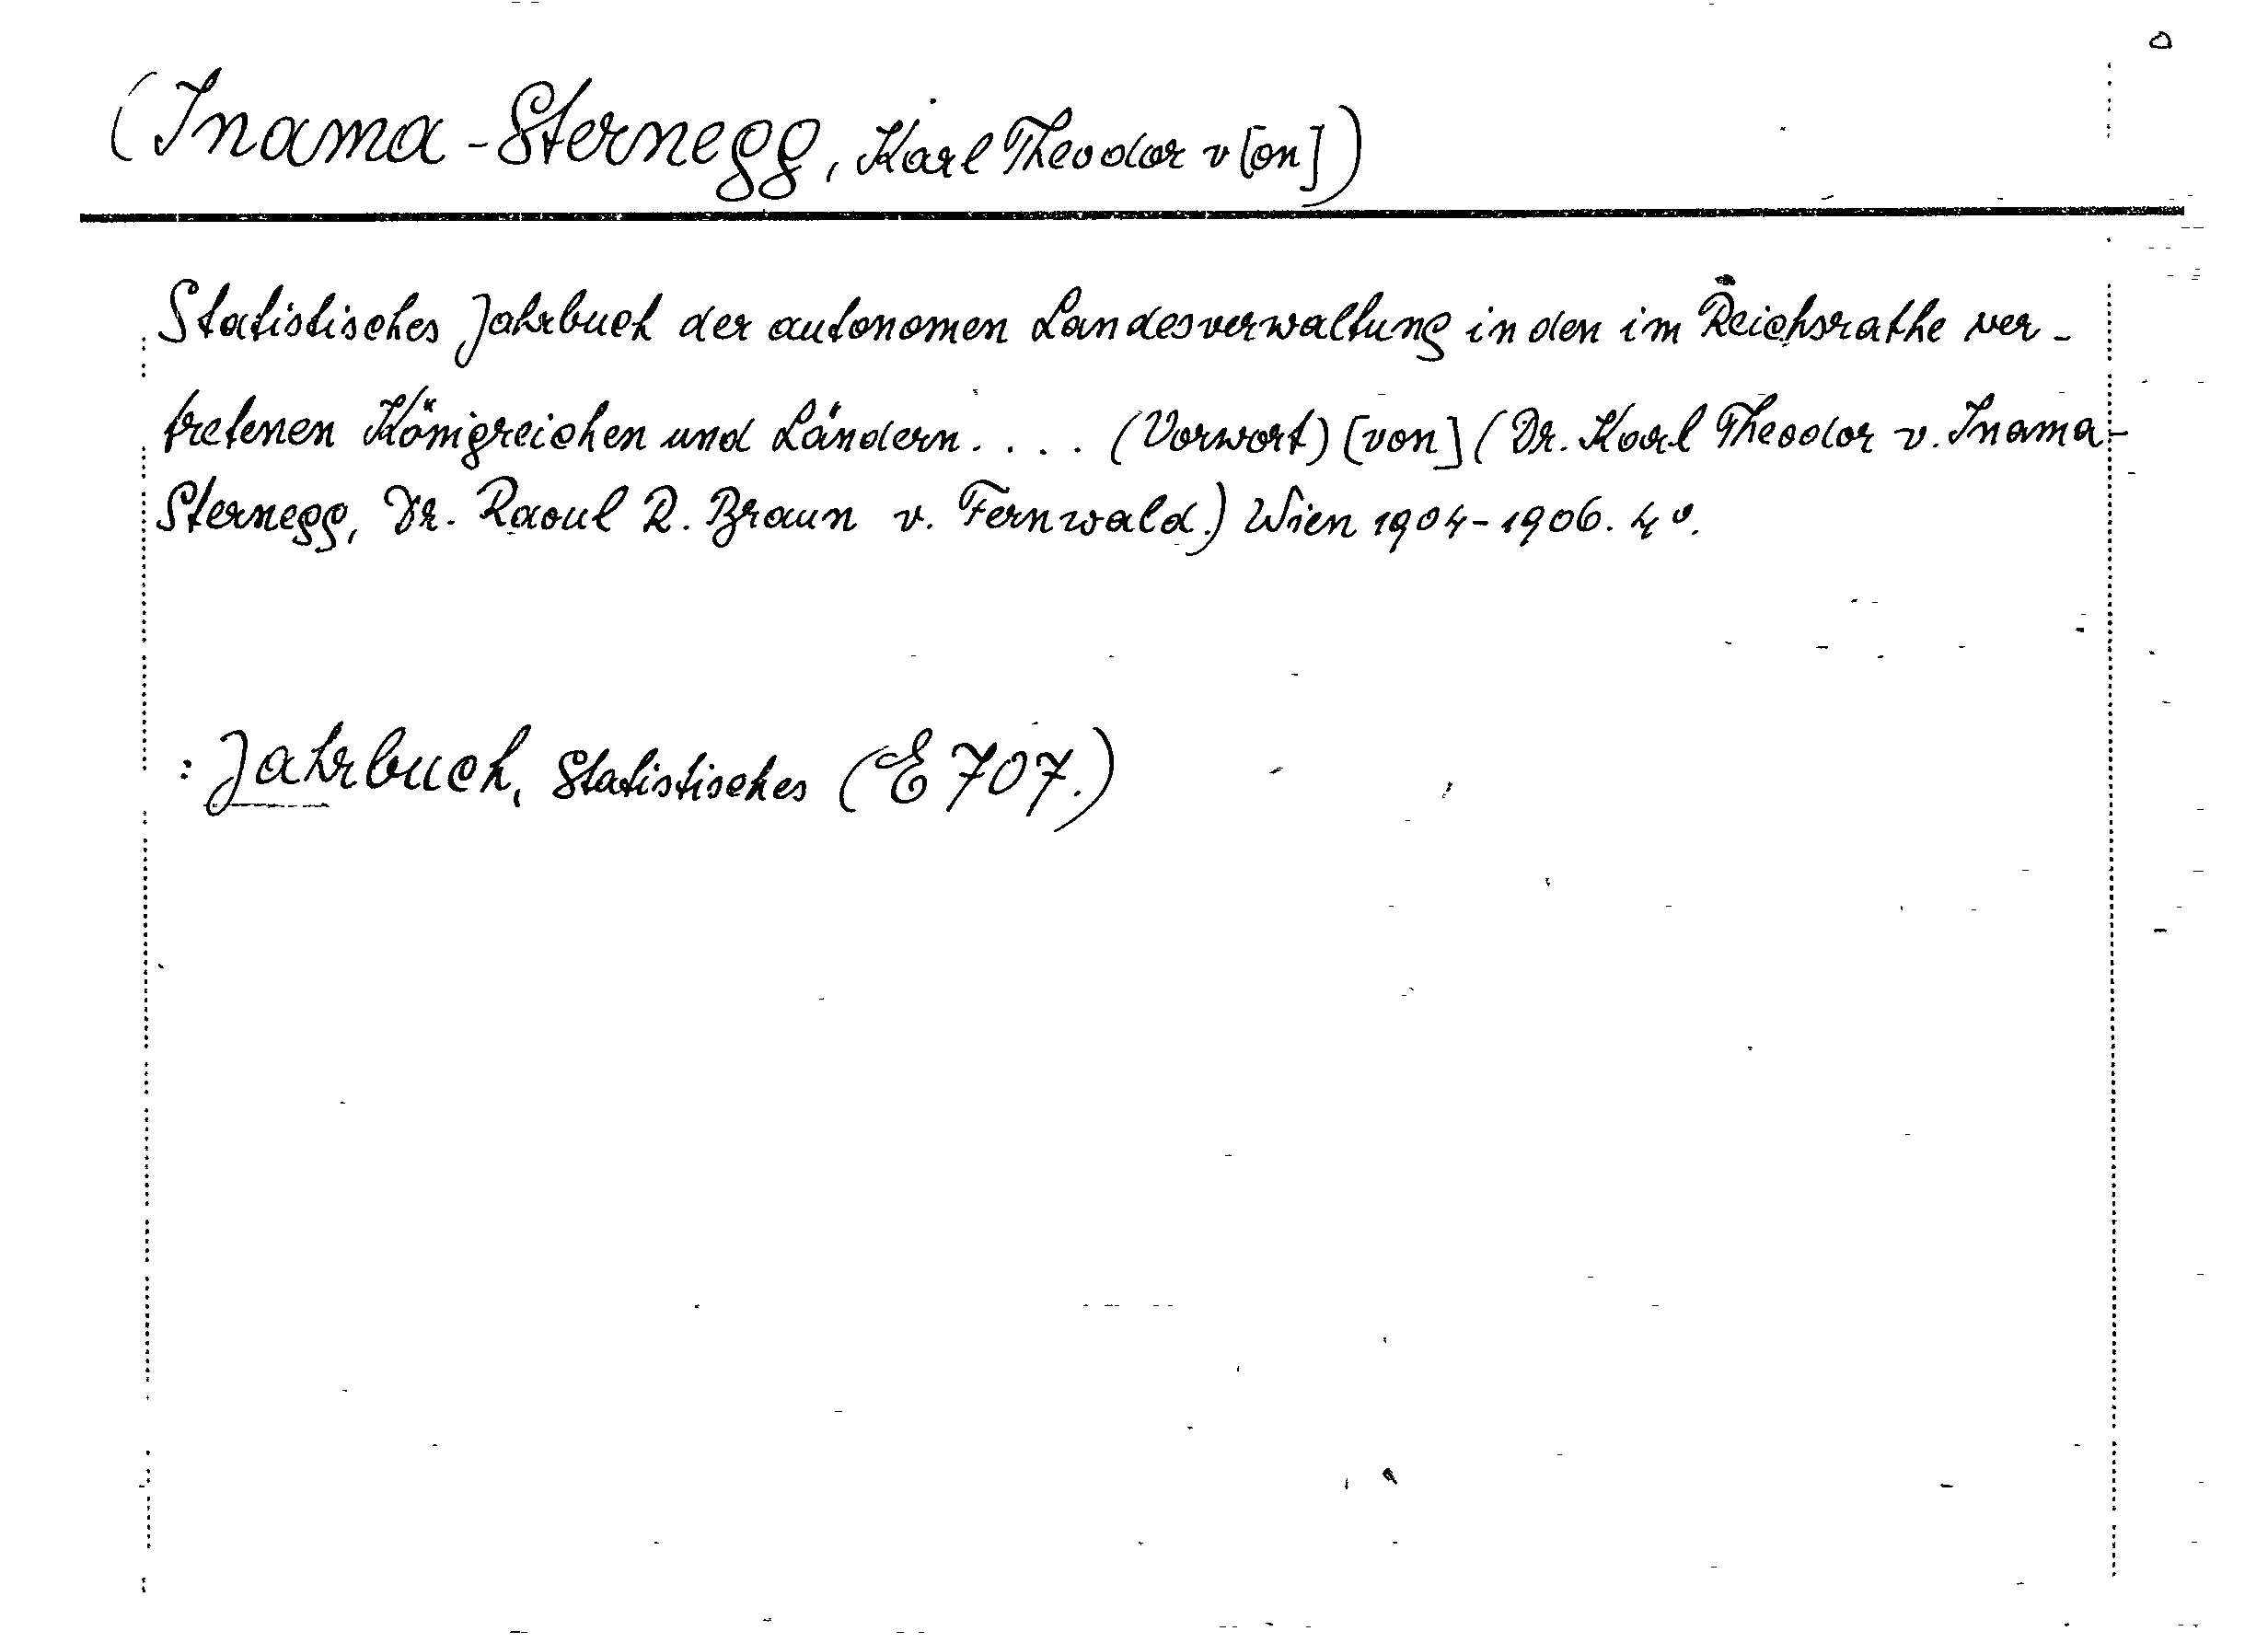 (Inama-Sternegg, Karl Theodor v[on])
Statistisches Jahrbuch der autonomen Landesverwaltung in den im Reichsrathe ver-
tretenen Königreichen und Ländern. . . . (Vorwort) [von] (Dr. Karl Theodor v. Inama-
Sternegg, Dr. Raoul R. Braun v. Fernwald.) Wien 1904-1906. 4°.
: Jahrbuch, Statistisches (E 707.)